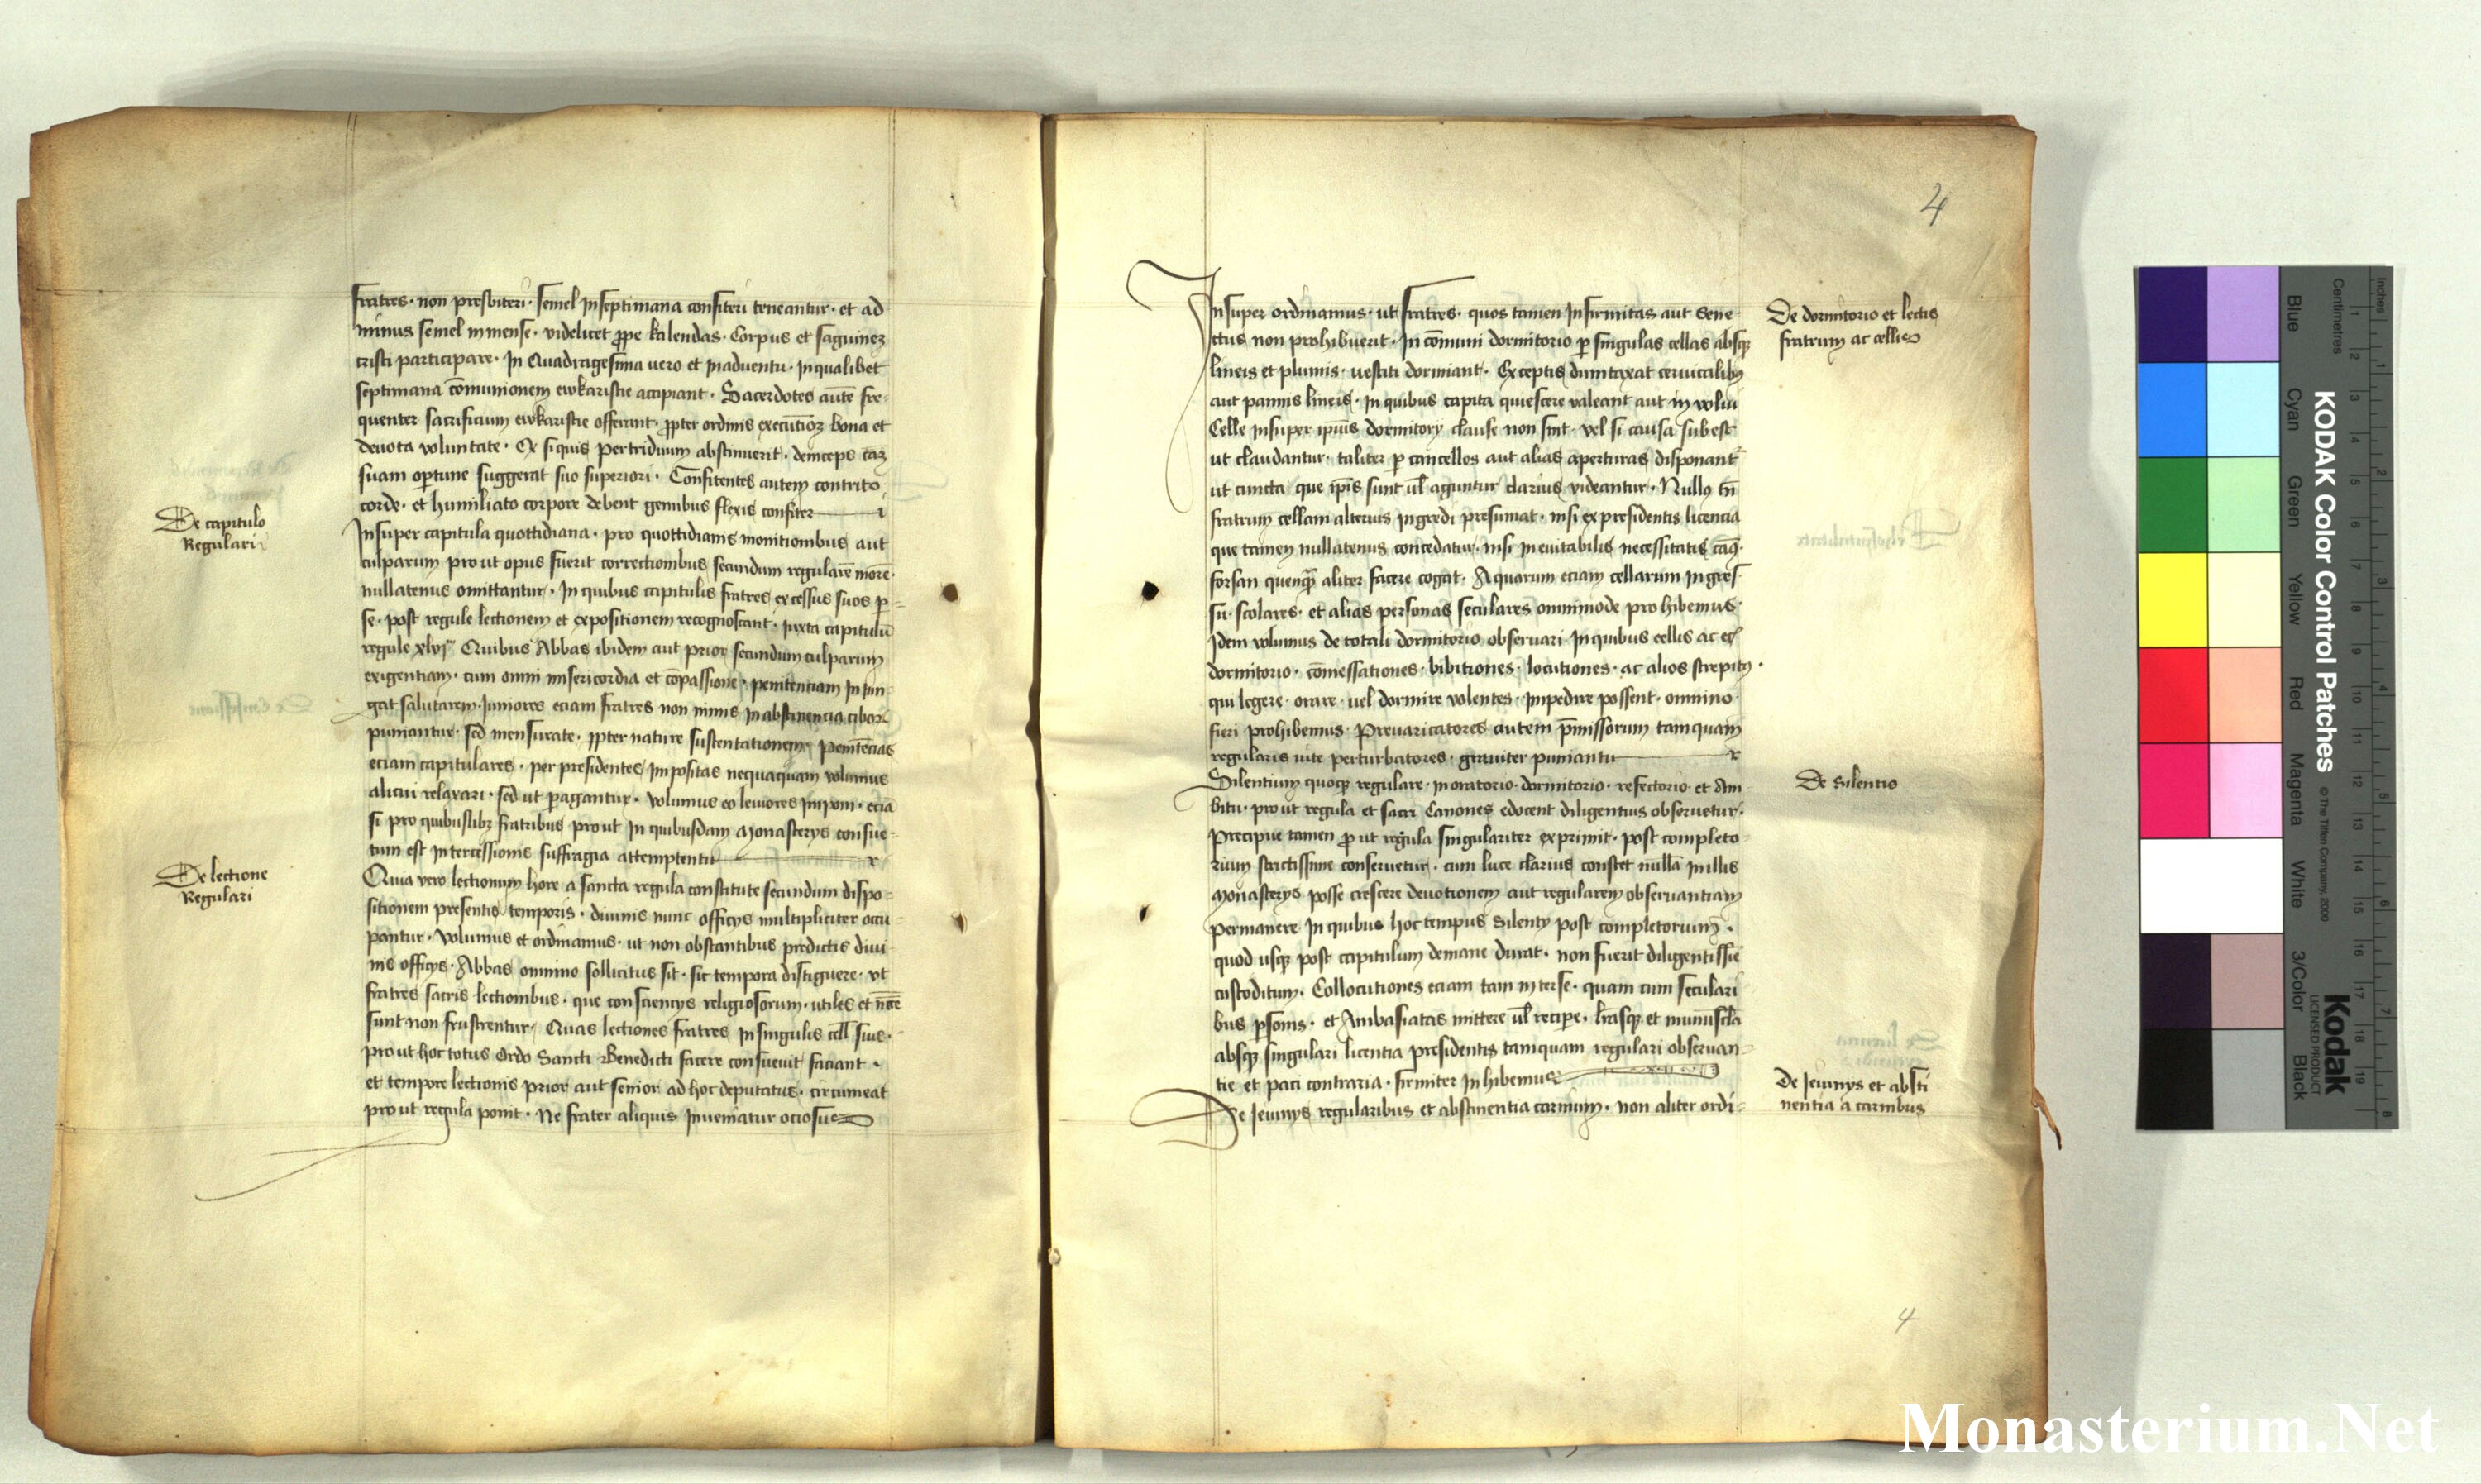 fratres · non presbiteri · semel in septimana confiteri teneantur · et ad
minus semel in mense · videlicet ꝓpe kalendas · Corpus et sāguineʒ
cristi participare · In Quadragesima uero et in aduentu · in qualibet
septimana cōmunionem ewkaristie accipiant · Sacerdotes autē fre-
quenter sacrificium ewkaristie offerant · ꝓpter ordinis executōeʒ bona et
deuota voluntate · Et si quis per triduum abstinuerit · deinceps cāʒ
suam oꝑtune suggerat suo superiori · Confitentes autem contrito
corde · et humiliato corpore debent genibus flexis confiteri
De capitulo
Regulari
Insuper capitula quottidiana · pro quottidianis monitionibus aut
culparum pro ut opus fuerit correctionibus secundum regularē morē ·
nullatenus omittantur · In quibus capitulis fratres excessus suos ꝑ
se · post regule lectionem et expositionem recognoscant · iuxta capitulū
regule xlvjm Quibus Abbas ibidem aut prior secundum culparum
exigentiam · cum omni misericordia et cōpassione · penitentiam iniun-
gat salutarem · Iuniores eciam fratres non nimis in abstinencia cibor
puniantur · sed mensurate · ꝓpter nature sustentationem · Penitēcias
eciam capitulares · per presidentes impositas nequaquam volumus
alicui relaxari · sed ut ꝑagantur · volumus eo leuiores imponi · eciā
si pro quibuslibʒ fratribus pro ut in quibusdam Monasterys consue-
tum est intercessionis suffragia attemptentur
De lectione
Regulari
Quia vero lectionum hore a sancta regula constitute secundum dispo-
sitionem presentis temporis · diuinis nunc officys multipliciter occu-
pantur · Volumus et ordinamus · ut non obstantibus predictis diui-
nis officys · Abbas omnino sollicitus sit · sic tempora distīguere · vt
fratres sacris lectionibus · que conscientys religiosorum · utiles et nccē
sunt non frustrentur · Quas lectiones fratres in singulis cell suis ·
pro ut hoc totus Ordo Sancti Benedicti facere consueuit faciant ·
et tempore lectionis prior aut senior ad hoc deputatus · circumeat
pro ut regula ponit · Ne frater aliquis inueniatur ociosus
4
Insuper ordinamus · ut fratres · quos tamen infirmitas aut Sene-
ctus non prohibuerit · In cōmuni dormitorio ꝑ singulas cellas absqʒ
lineis et plumis · vestiti dormiant · Exceptis dumtaxat ceruicalibus
aut pannis lineis · in quibus capita quiescere valeant aut inuolui
Celle insuper ipius dormitory clause non sint · vel si causa subest
ut claudantur · taliter ꝑ cancellos aut alias aperturas disponant
ut cuncta que ip̄is sunt ul̄ aguntur clarius videantur · Nullus tn̄
fratrum cellam alterius ingredi presumat · nisi ex presidentis licencia
que tamen nullatenus concedatur · nisi ineuitabilis necessitatis cāqʒ ·
forsan quenqʒ aliter facere cogat · A quarum eciam cellarum ingres-
su · scolares · et alias personas seculares omnimode prohibemus ·
Idem volumus de totali dormitorio obseruari In quibus cellis ac
dormitorio · cōmessationes · bibitiones · locutiones · ac alios strepitus ·
qui legere · orare · uel dormire volentes · impedire possent · omnino
fieri prohibemus · Preuaricatores autem p̄missorum tamquam
regularis uite perturbatores · grauiter puniantur
De dormitorio et lectis
fratrum ac cellis
Silentium quoqʒ regulare · in oratorio · dormitorio · refectorio et Am-
bitu · pro ut regula et sacri Canones edocent diligentius obseruetur ·
Precipue tamen ꝓ ut regula singulariter exprimit · post completo-
rium strictissime conseruetur · cum luce clarius constet nullā in illis
Monasterys posse crescere deuotionem aut regularem obseruantiam
permanere In quibus hoc tempus Silenty post completorium ·
quod usqʒ post capitulum de mane durat · non fuerit diligentissīe
custoditum · Collocutiones eciam tam inter se · quam cum seculari
bus ꝑsonis · et Ambasiatas mittere ul̄ reciꝑe · lrāsqʒ et munuscla
absqʒ singulari licentia presidentis tamquam regulari obseruan-
tie et paci contraria · firmiter inhibemus
De Silentio
De Ieiunys regularibus et abstinentia carnium · non aliter ordi-
De Ieiunys et absti
nentia a carnibus
4
KODAK Color Control Patches
© The Tiffen Company, 2000
Kodak
LICENSED PRODUCT
Blue
Cyan
Green
Yellow
Red
Magenta
White
3/Color
Black
Centimetres
Inches
Monasterium.Net